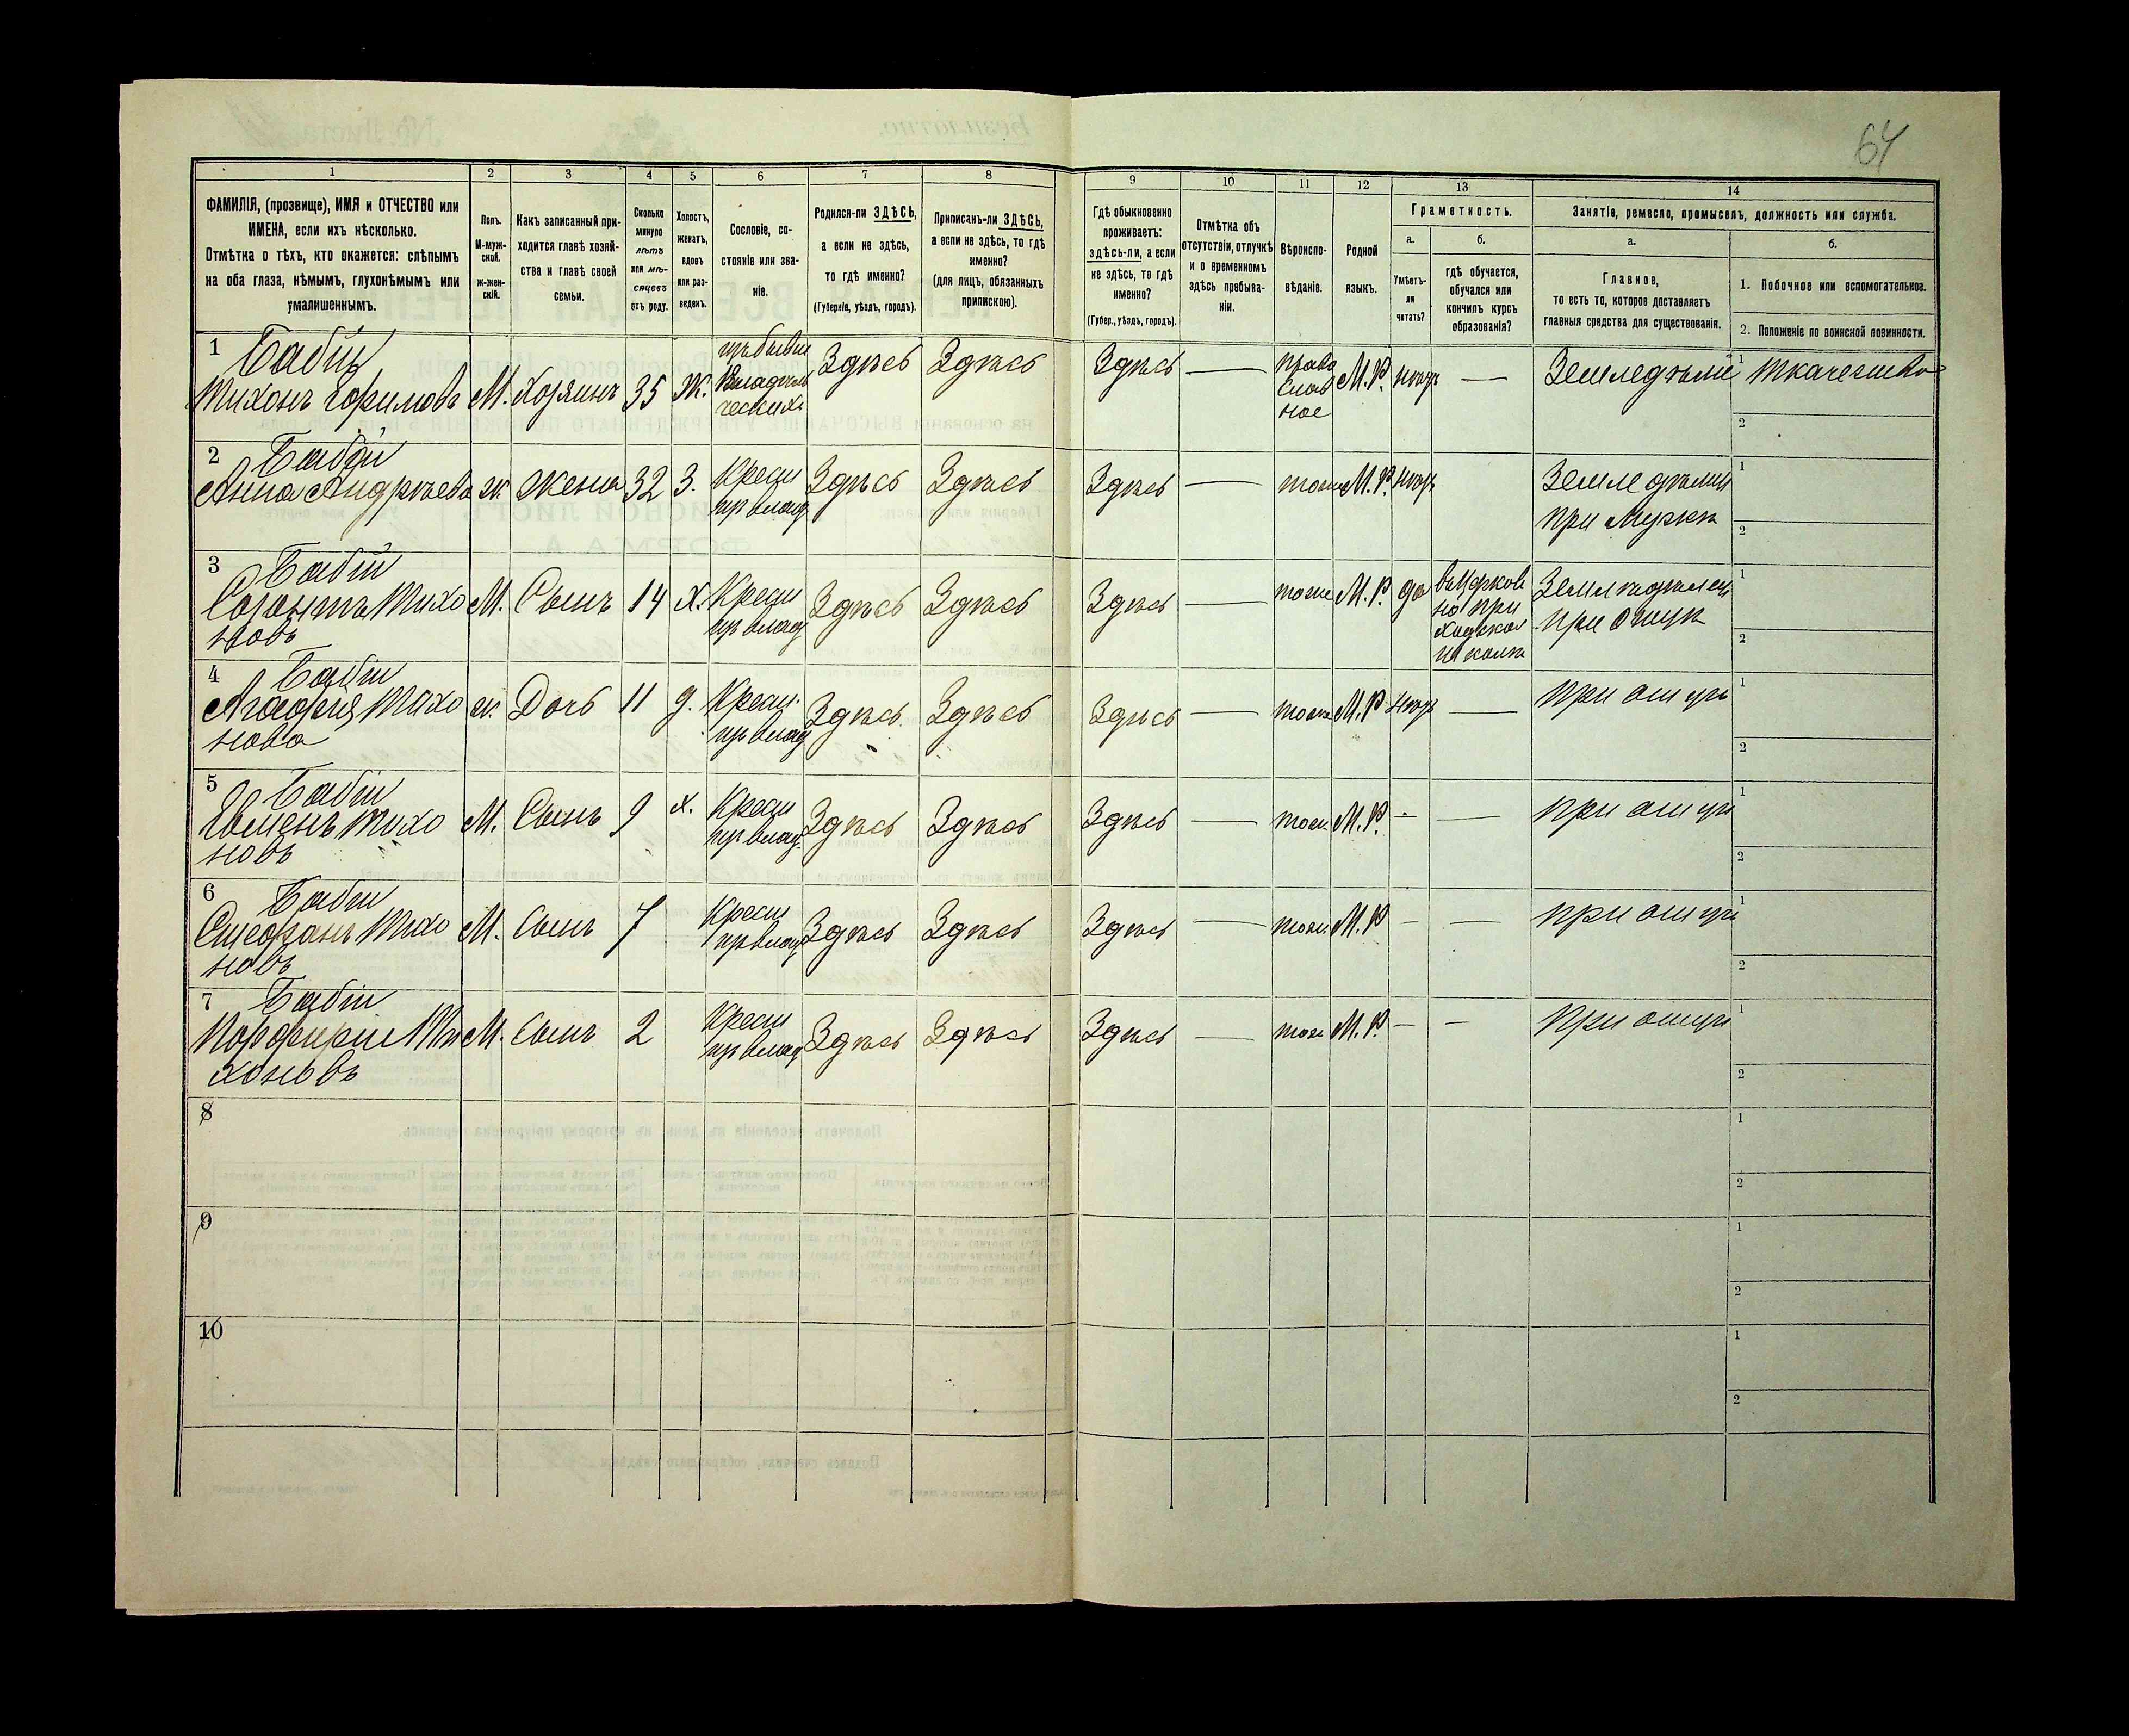 64
1 2 3 4 5 6 7 8 9 10 11 12 13 14
ФАМИЛІЯ, (прозвище), ИМЯ и ОТЧЕСТВО или
ИМЕНА, если ихъ нѣсколько.
Отмѣтка о тѣхъ, кто окажется: слѣпымъ
на оба глаза, нѣмымъ, глухонѣмымъ или
умалишеннымъ.
Полъ.
М-муж-
ской.
ж-жен-
скій.
Какъ записанный при-
ходится главѣ хозяй-
ства и главѣ своей
семьи.
Сколько
минуло
лѣтъ
или мѣ-
сяцевъ
отъ роду.
Холостъ,
женатъ,
вдовъ
или раз-
веденъ.
Сословіе, со-
стояніе или зва-
ніе.
Родился-ли ЗДѢСЬ,
а если не здѣсь,
то гдѣ именно?
(Губернія, уѣздъ, городъ).
Приписанъ-ли ЗДѢСЬ,
а если не здѣсь, то гдѣ
именно?
(для лицъ, обязанныхъ
припискою).
Гдѣ обыкновенно
проживаетъ:
здѣсь-ли, а если
не здѣсь, то гдѣ
именно?
(Губер., уѣздъ, городъ).
Отмѣтка объ
отсутствіи, отлучкѣ
и о временномъ
здѣсь пребыва-
ніи.
Вѣроиспо-
вѣданіе.
Родной
языкъ.
Грамотность.
а.
Умѣетъ-
ли
читать?
б.
гдѣ обучается,
обучался или
кончилъ курсъ
образованія?
Занятіе, ремесло, промыселъ, должность или служба.
а.
Главное,
то есть то, которое доставляетъ
главныя средства для существованія.
б.
1. Побочное или вспомогательное.
2. Положеніе по воинской повинности.
1 Бабій
Тихонъ М. Хозяинъ 35 Ж. Здѣсь Здѣсь Здѣсь — право М.Р. нѣтъ — Земледѣліе 1
слав
ное
2
2 Бабій
Анна Андреева ж. Жена 32 З. Крест Здѣсь Здѣсь Здѣсь — тоже М.Р. нѣтъ Земледѣліи 1
пр влад при Мужѣ 2
3 Бабій
Созонтъ Тихо М. Сынъ 14 Х. Крест Здѣсь Здѣсь Здѣсь — тоже М.Р. да въ Церков 1
новъ пр влад но при при отцѣ
ходской
школѣ 2
4 Бабій
Агафія Тихо ж. Дочь 11 д. Крест. Здѣсь Здѣсь Здѣсь — тоже М.Р нѣтъ — при отцѣ 1
нова пр влад 2
5 Бабій
Тихо М. Сынъ 9 х. Крест Здѣсь Здѣсь Здѣсь — тож. М.Р. — — при отцѣ 1
новъ пр влад. 2
6 Бабій
Стефанъ Тихо М. Сынъ 7 Крест Здѣсь Здѣсь Здѣсь — тож. М.Р — — при отцѣ 1
новъ пр влад 2
7 Бабій
Порфирій Ти М. Сынъ 2 Крест Здѣсь Здѣсь Здѣсь — тож М.Р. — — при отцѣ 1
хоновъ пр влад 2
8 1
2
9 1
2
10 1
2